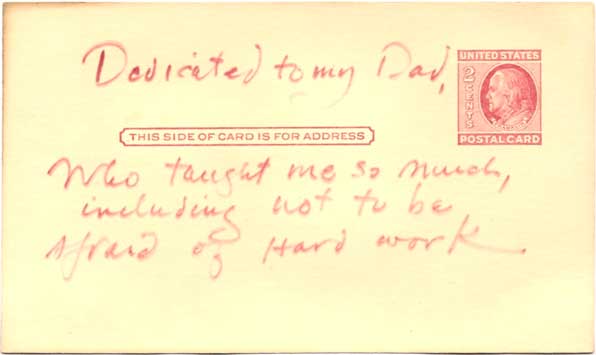 Dedicated to my Dad,
UNITED STATES
2 CENTS
POSTAL CARD
THIS SIDE OF CARD IS FOR ADDRESS
Who taught me so much,
including not to be
Afraid of Hard work